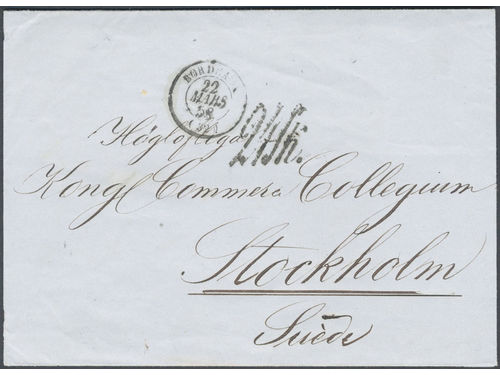 BORDEAUX
22
MARS
58
(32)
Höglofliga
Kong Commers Collegium
Stockholm
Suède